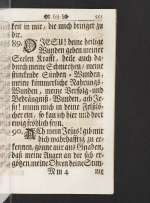 ) o (     551
keit in mir, die mich bringet zu
dir.
89. O JESU! deine heilige
Wunden geben meiner
Seelen Krafft, heile auch da-
durch meine Schmertzen, meine
stinckende Sünden-Wunden,
meine kümmerliche Nahrungs-
Wunden, meine Verfolg- und
Bedrängnüß-Wunden, ach Je-
su! nimm mich in deine
ein, so kan ich hier und dort
ewig frölich seyn.
Ach mein JEsus! gib mir
dich wahrhafftig zu er-
kennen, gönne mir aus Gnaden,
daß meine Augen an dir sich er-
götzen, meine Ohren deine Stim-
M m 4     me